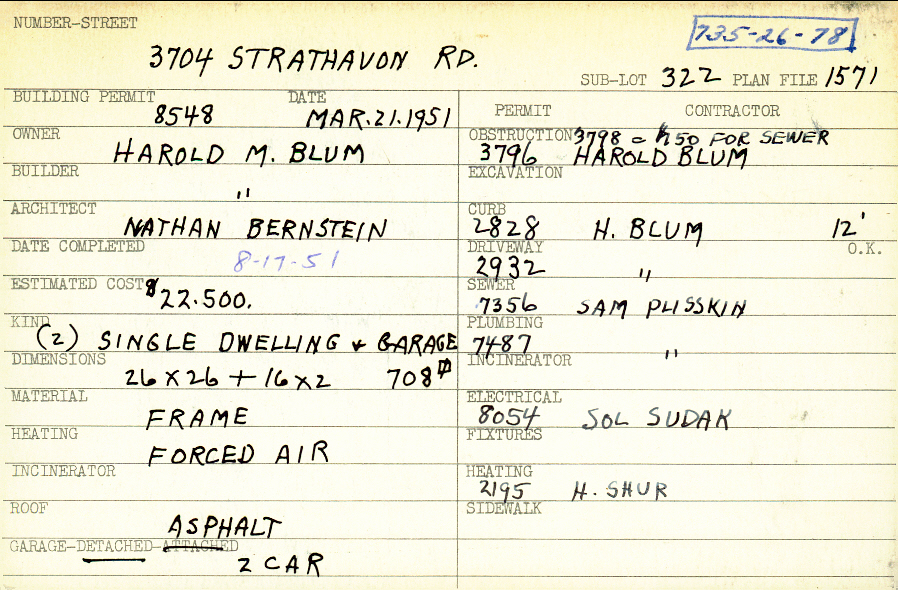 NUMBER-STREET
735-26-78
3704 STRATHAVON RD.
SUB-LOT 322 PLAN FILE 1571
BUILDING PERMIT 8548 DATE MAR.21.1951
OWNER HAROLD M. BLUM
BUILDER "
ARCHITECT NATHAN BERNSTEIN
DATE COMPLETED 8-17-51
ESTIMATED COST $22.500.
KIND (2) SINGLE DWELLING & GARAGE
DIMENSIONS 26 X 26 + 16 X 2 708
MATERIAL FRAME
HEATING FORCED AIR
INCINERATOR
ROOF ASPHALT
GARAGE-DETACHED-ATTACHED
2 CAR
PERMIT CONTRACTOR
OBSTRUCTION 3798 = 50 FOR SEWER
3796 HAROLD BLUM
EXCAVATION
CURB
2828 H. BLUM 12'
DRIVEWAY O.K.
2932 "
SEWER
7356 SAM PLISSKIN
PLUMBING
7487 "
INCINERATOR
ELECTRICAL
8054 SOL SUDAK
FIXTURES
HEATING
2195 H. SHUR
SIDEWALK